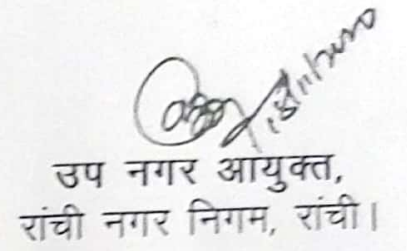 उप नगर आयुक्त,
रांची नगर निगम, रांची।